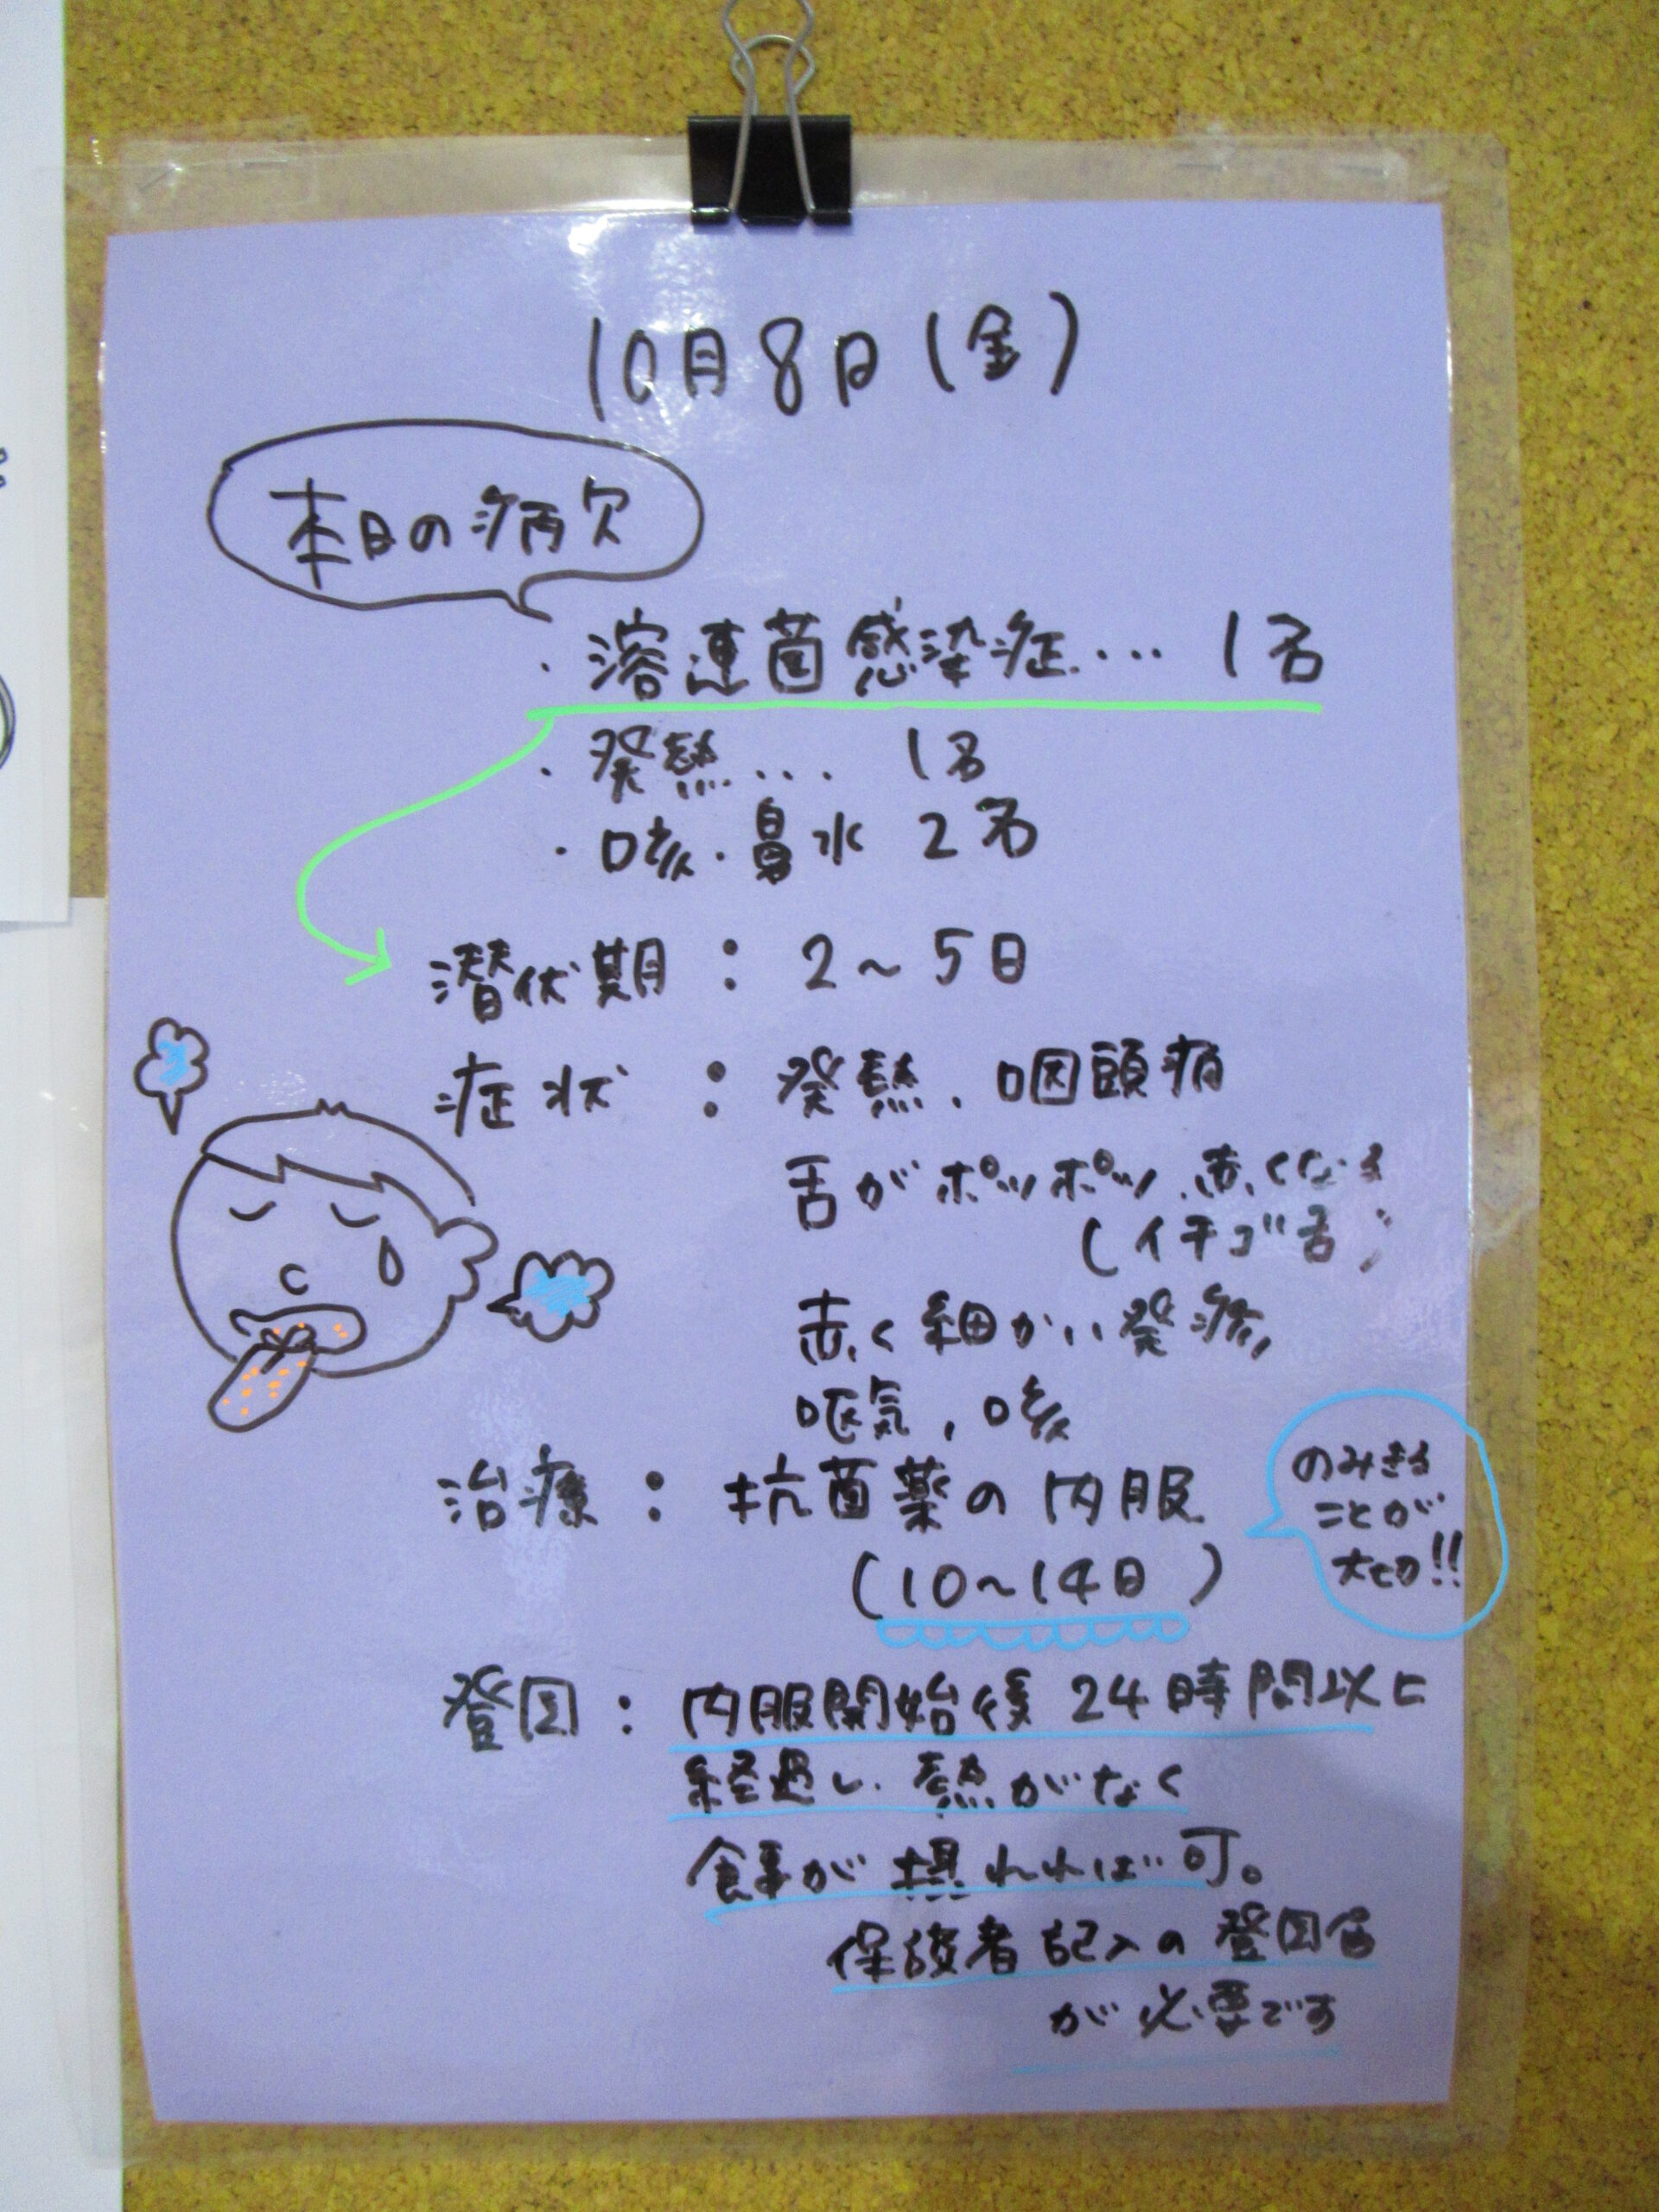 10月8日(金)
本日の病欠
・溶連菌感染症… 1名
・発熱… 1名
・咳・鼻水 2名
潜伏期：2～5日
症状：発熱、咽頭痛
舌がポツポツ赤くなる
(イチゴ舌)
赤く細かい発疹
嘔気、咳
治療：抗菌薬の内服
(10～14日)
のみきる
ことが
大切!!
登園：内服開始後24時間以上
経過し、熱がなく
食事が摂れれば可。
保護者記入の登園届
が必要です